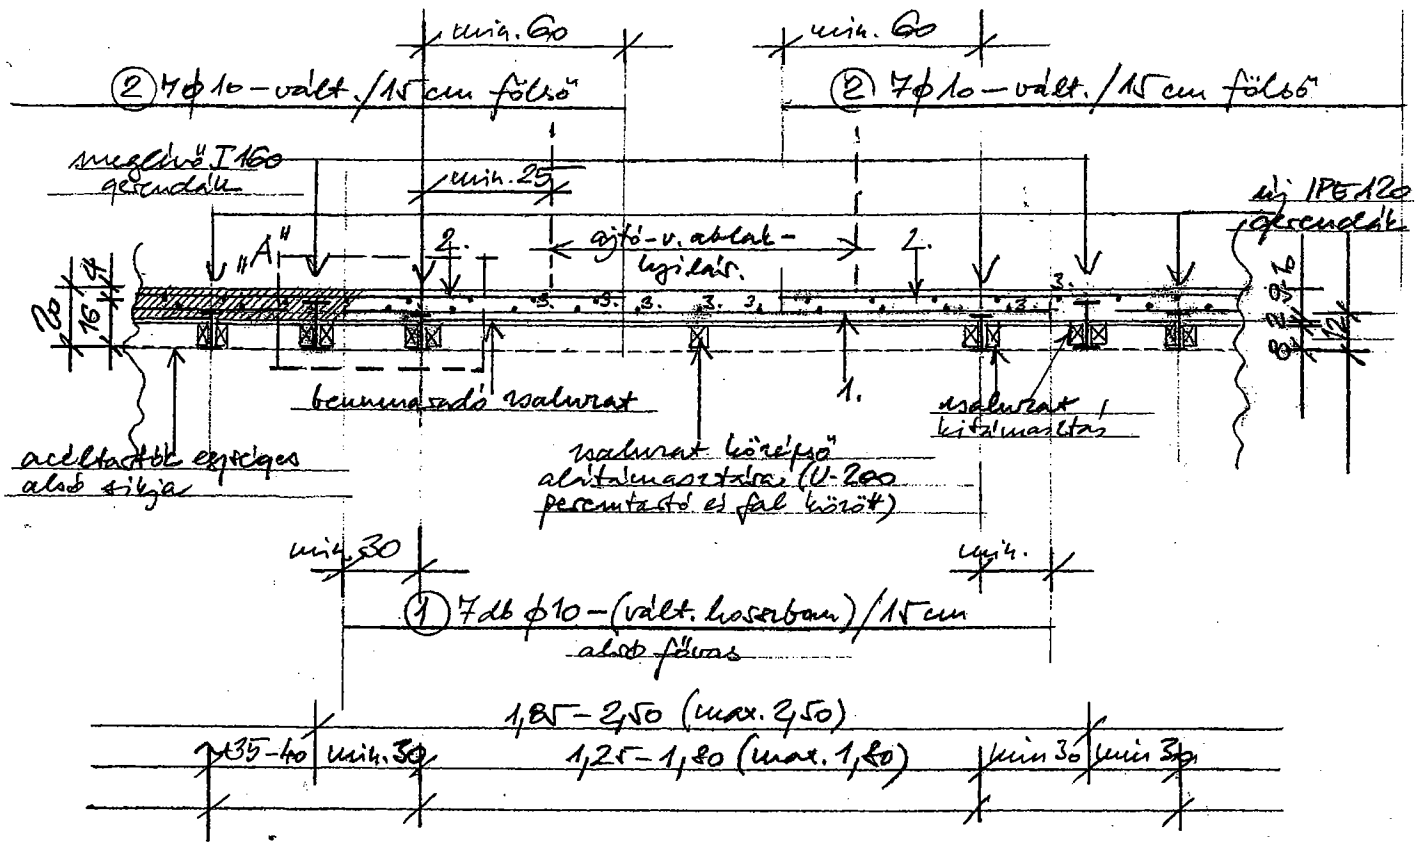 min. 60
min. 60
② 7ϕ10-vált./15 cm fölső
② 7ϕ10-vált./15 cm fölső
meglévő I 160
gerendák
min. 25
új IPE 120
gerendák
„A"
2.
ajtó-v. ablak-
nyílás.
2.
3.
3.
3.
3.
3.
3.
3.
4
16
20
2
12
8
1.
bennmaradó zsaluzat
zsaluzat
kitámasztás
acéltartók egységes
alsó síkja
zsaluzat középső
alátámasztása (U-200
peremtartó és fal között)
min. 30
min.
① 7 db ϕ10-(vált. hosszban)/15 cm
alsó fővas
1,85-2,50 (max. 2,50)
35-40
min. 30
1,25-1,80 (max. 1,80)
min 30
min 30